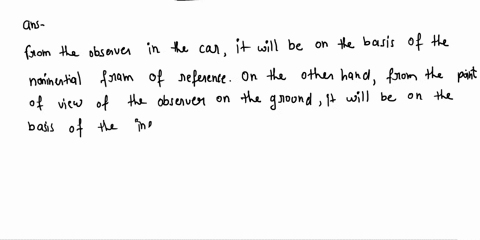 ans-
from the observer in the car, it will be on the basis of the
noninertial fram of reference. On the other hand, from the point
of view of the observer on the ground, it will be on the
basis of the in